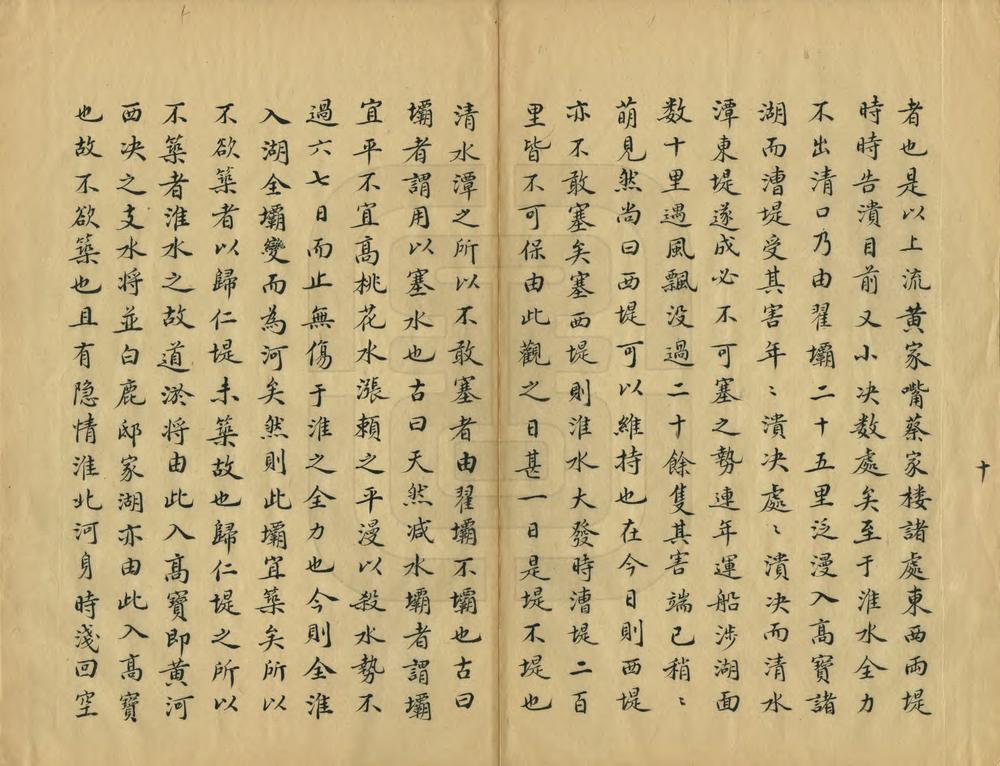 者也是以上流黄家嘴蔡家楼諸處東西両堤
時時告潰目前又小决数處矣至于淮水全力
不出清口乃由翟壩二十五里泛漫入高寶諸
湖而漕堤受其害年〻潰决處〻潰决而清水
潭東堤遂成必不可塞之勢連年運船涉湖面
数十里遇風飄没過二十餘隻其害端已稍〻
萌見然尚曰西堤可以維持也在今日則西堤
亦不敢塞矣塞西堤則淮水大發時漕堤二百
里皆不可保由此觀之日甚一日是堤不堤也
清水潭之所以不敢塞者由翟壩不壩也古曰
壩者謂用以塞水也古曰天然减水壩者謂壩
宜平不宜高桃花水漲頼之平漫以殺水勢不
過六七日而止無傷于淮之全力也今則全淮
入湖全壩變而為河矣然則此壩宜築矣所以
不欲築者以歸仁堤未築故也歸仁堤之所以
不築者淮水之故道淤将由此入高寶即黄河
西决之支水将並白鹿邸家湖亦由此入高寶
也故不欲築也且有隐情淮北河身時淺回空
十